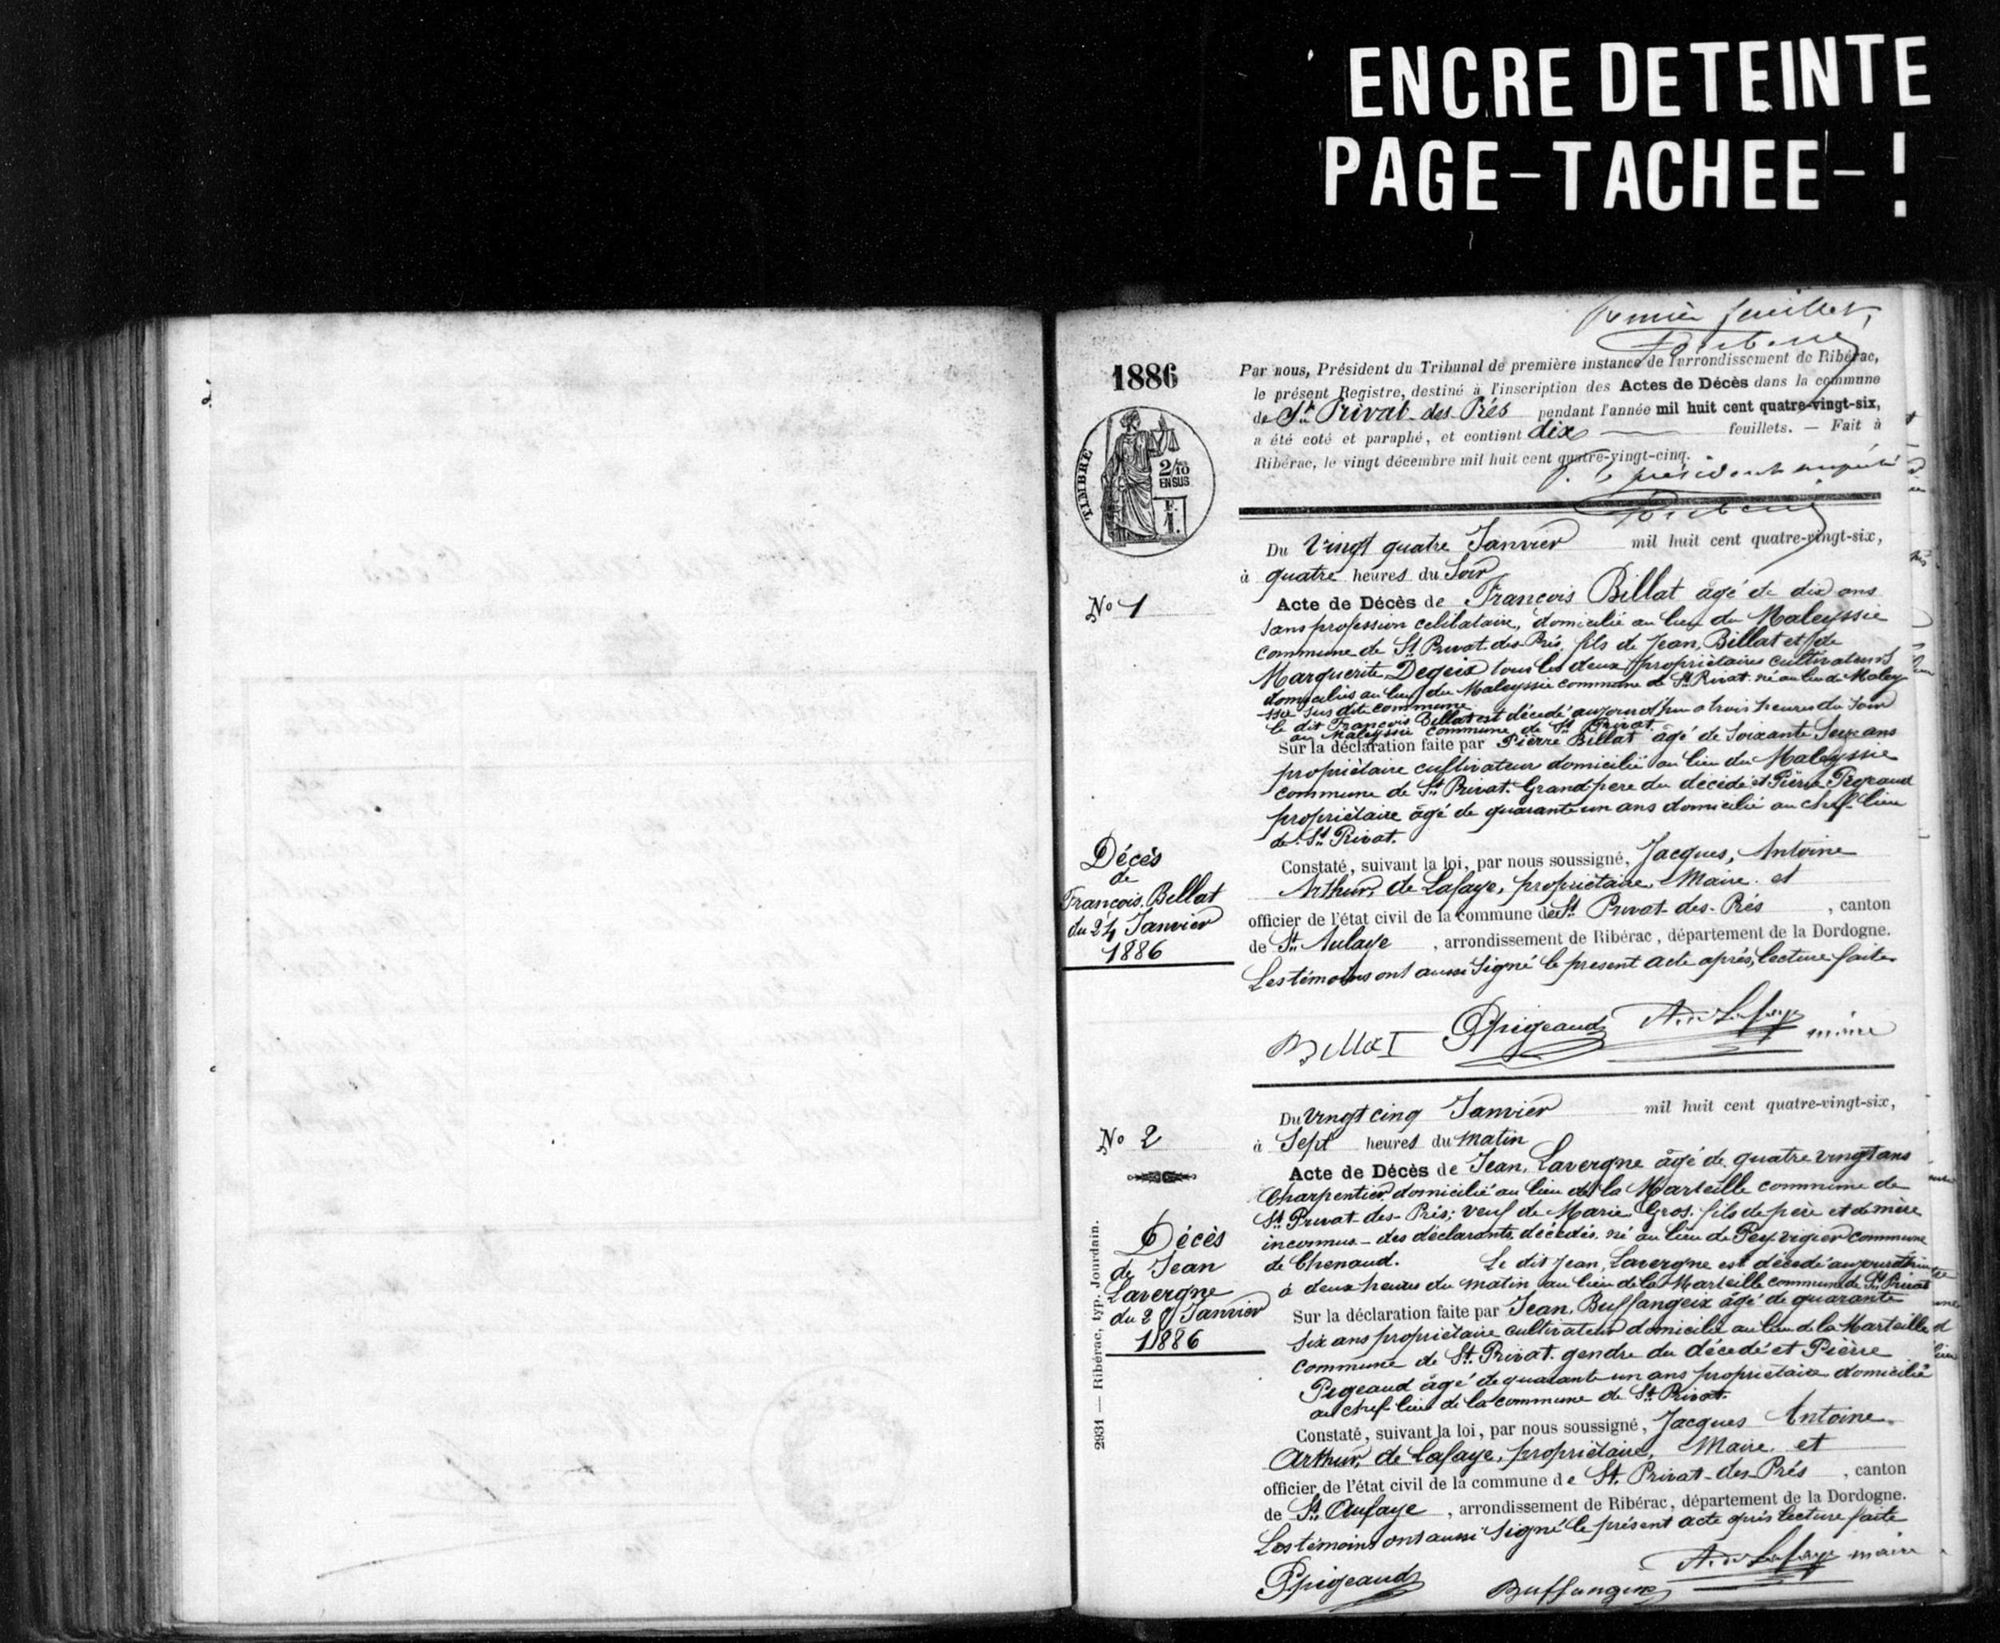 ENCRE DETEINTE
PAGE-TACHEE-!
Premier feuillet,
1886
Par nous, Président du Tribunal de première instance de l'arrondissement de Ribérac,
le présent Registre, destiné à l'inscription des Actes de Décès dans la commune
de St Privat-des-Prés pendant l'année mil huit cent quatre-vingt-six,
a été coté et paraphé, et contient dix feuillets. — Fait à
Ribérac, le vingt décembre mil huit cent quatre-vingt-cinq.
P. le président empêché
TIMBRE
2/10 EN SUS
F. 1.
Du Vingt quatre Janvier mil huit cent quatre-vingt-six,
à quatre heures du Soir
No 1
Acte de Décès de François Billat âgé de dix ans
sans profession celibataire, domicilié au lieu du Maleyssie
commune de St Privat-des-Prés, fils de Jean, Billat et de
Marguerite, Degeix tous les deux propriétaires cultivateurs
domiciliés au lieu du Maleyssie commune de St Privat né au lieu de Maley
ssie sus dite commune
le dit François Billat est décédé aujourd'hui a trois heures du soir
au Maleyssie commune de St Privat.
Sur la déclaration faite par Pierre Billat âgé de soixante seize ans
propriétaire cultivateur domicilié au lieu du Maleyssie
commune de St Privat. Grand-pere du décédé et Pierre Pigeaud
propriétaire âgé de quarante un ans domicilié au chef-lieu
de St Privat.
Constaté, suivant la loi, par nous soussigné, Jacques, Antoine
Arthur, de Lafaye, propriétaire, Maire et
officier de l'état civil de la commune de St Privat-des-Prés, canton
de St Aulaye, arrondissement de Ribérac, département de la Dordogne.
Les témoins ont aussi signé le present acte après lecture faite
Décès
de
François, Billat
du 24 Janvier
1886
Billat PPigeaud A. de Lafaye maire
Du Vingt cinq Janvier mil huit cent quatre-vingt-six,
No 2
à Sept heures du matin
Acte de Décès de Jean, Lavergne âgé de quatre vingt ans
Charpentier domicilié au lieu de la Marteille commune de
St Privat-des-Prés; veuf de Marie Gros. fils de père et de mère
inconnus des déclarants, décédés, né au lieu de Pey-vigier commune
de Chenaud. Le dit Jean, Lavergne est décédé aujourd'hui
à deux heures du matin au lieu de la Marteille commune de St Privat
Sur la déclaration faite par Jean, Buffangeix âgé de quarante
six ans propriétaire cultivateur domicilié au lieu de la Marteille
commune de St. Privat gendre du décédé et Pierre
Pigeaud âgé de quarante un ans propriétaire domicilié
au chef lieu de la commune de St Privat.
Constaté, suivant la loi, par nous soussigné, Jacques Antoine
Arthur, de Lafaye, propriétaire, Maire et
officier de l'état civil de la commune de St. Privat-des-Prés, canton
de St Aulaye, arrondissement de Ribérac, département de la Dordogne.
Les témoins ont aussi signé le présent acte après lecture faite
Décès
de Jean
Lavergne
du 25 Janvier
1886
2931 — Ribérac, typ. Jourdain.
A. de Lafaye maire
PPigeaud Buffangeix